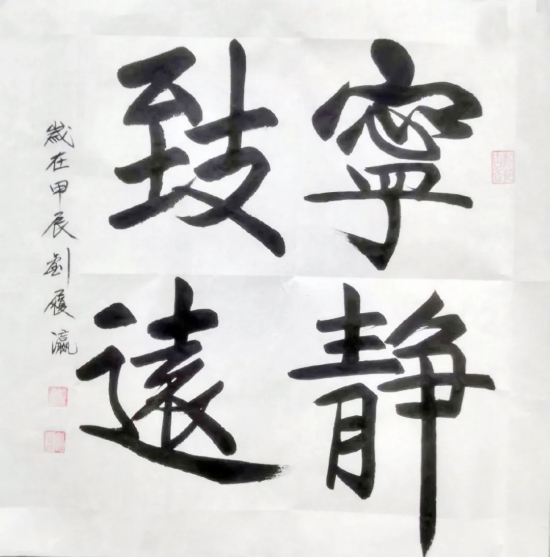 寧静
致遠
歲在甲辰劉履瀛